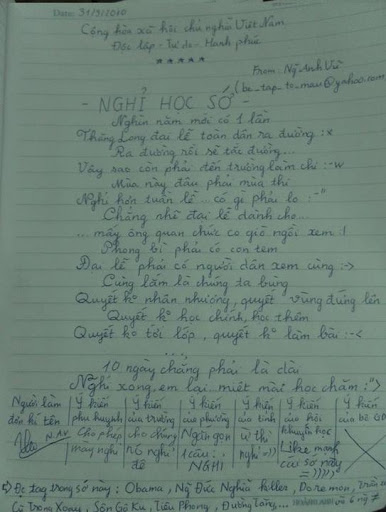 Date: 31/9/2010
Cộng hòa xã hội chủ nghĩa Việt Nam
Độc lập - Tự do - Hạnh phúc
*****
From: Ng Anh Vũ
(be_tap_to_mau@yahoo.com
- NGHỈ HỌC SỚ -
Nghìn năm mới có 1 lần
Thăng Long đại lễ toàn dân ra đường :x
Ra đường rồi sẽ tắc đường...
Vậy sao còn phải đến trường làm chi :-w
Mùa này đâu phải mùa thi
Nghỉ hơn tuần lễ ... có gì phải lo :-"
Chẳng nhẽ đại lễ dành cho...
... mấy ông quan chức co giò ngồi xem :!
Phong bì phải có con tem
Đại lễ phải có người dân xem cùng :->
Cùng lắm là chúng ta bùng
Quyết k° nhân nhượng, quyết vùng đứng lên
Quyết k° học chính, học thêm
Quyết k° tới lớp, quyết k° làm bài :-<
...
10 ngày chẳng phải là dài
Nghỉ xong, em lại miệt mài học chăm :">
Người làm đơn kí tên
N.AV
Ý kiến phụ huynh
Cho phép mày nghỉ
Ý kiến của trường
cho chúng nó nghỉ đê
Ý kiến của phường
Ngắn gọn 1 câu: NGHỈ
Ý kiến của tỉnh
ừ thì nghỉ =))
Ý kiến của hội khuyến học
Like mạnh cái sớ này =))))
Ý kiến của bộ GD
Đc tag trong sớ này: Obama, Ng Đức Nghĩa killer, Doremon,
Cù Trọng Xoay, Sôn Gô Ku, Tiêu Phong, Đường Tăng...